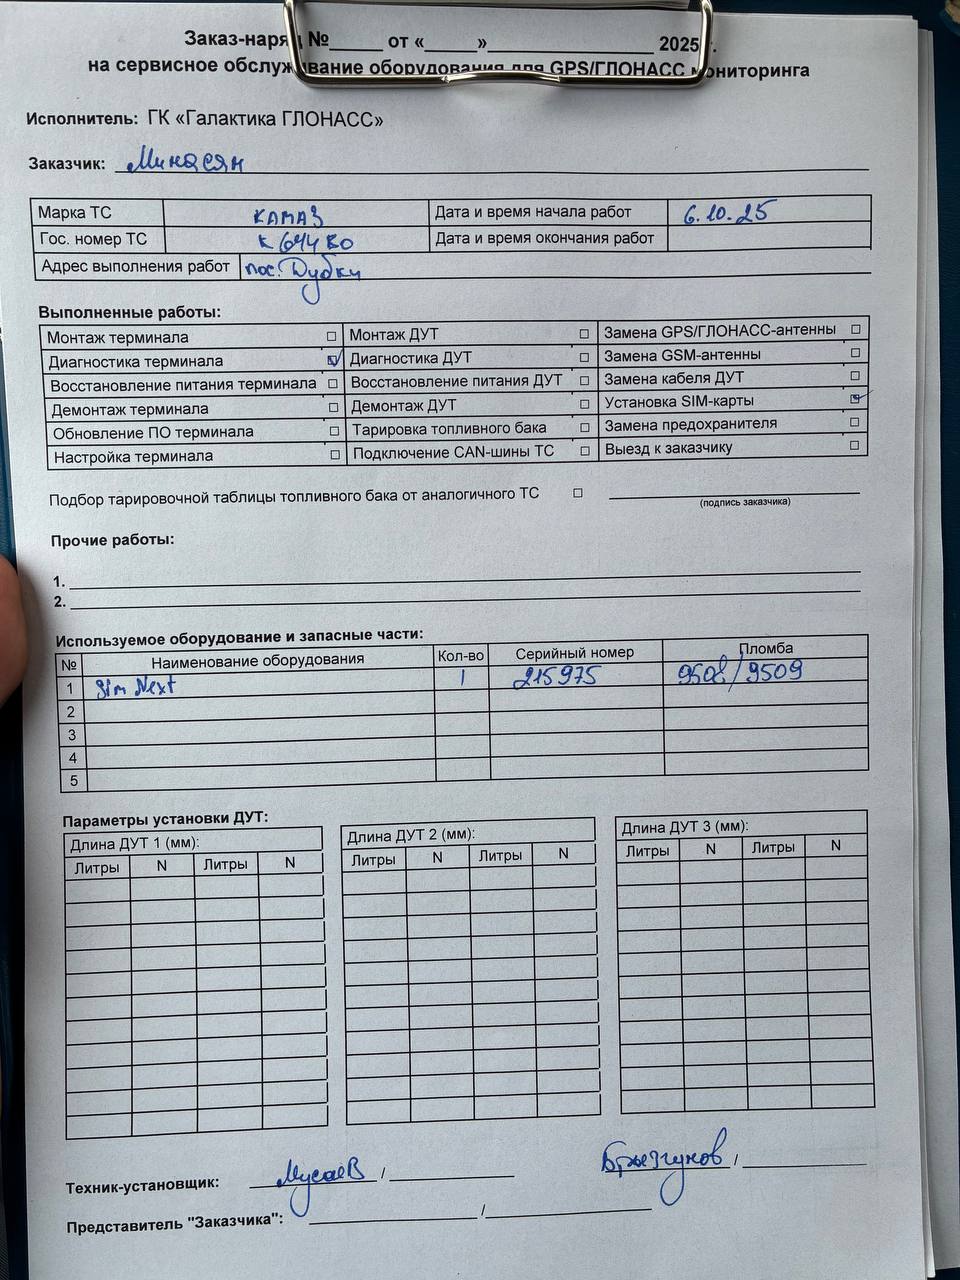 Заказ-наряд №_____ от «_____»________________ 2025 г.
на сервисное обслуживание оборудования для GPS/ГЛОНАСС мониторинга
Исполнитель: ГК «Галактика ГЛОНАСС»
Заказчик: Минасян
Марка ТС КАМАЗ Дата и время начала работ 6.10.25
Гос. номер ТС К 644 ВО Дата и время окончания работ
Адрес выполнения работ пос. Дубки
Выполненные работы:
Монтаж терминала □ Монтаж ДУТ □ Замена GPS/ГЛОНАСС-антенны □
Диагностика терминала ☑ Диагностика ДУТ □ Замена GSM-антенны □
Восстановление питания терминала □ Восстановление питания ДУТ □ Замена кабеля ДУТ □
Демонтаж терминала □ Демонтаж ДУТ □ Установка SIM-карты ☑
Обновление ПО терминала □ Тарировка топливного бака □ Замена предохранителя □
Настройка терминала □ Подключение CAN-шины ТС □ Выезд к заказчику □
Подбор тарировочной таблицы топливного бака от аналогичного ТС □
(подпись заказчика)
Прочие работы:
1.
2.
Используемое оборудование и запасные части:
№ Наименование оборудования Кол-во Серийный номер Пломба
1 Sim Next 1 215975 9508/9509
2
3
4
5
Параметры установки ДУТ:
Длина ДУТ 1 (мм): Длина ДУТ 2 (мм): Длина ДУТ 3 (мм):
Литры N Литры N Литры N Литры N Литры N Литры N
Техник-установщик: Мусаев / Брызгунов /
Представитель "Заказчика": /